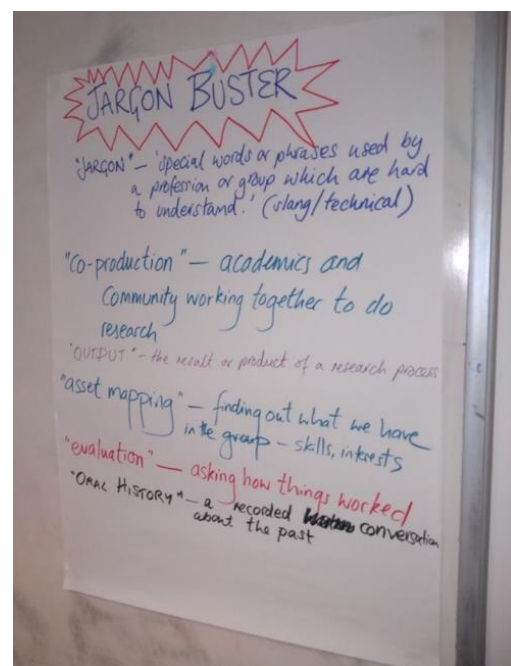 JARGON BUSTER
"JARGON" – 'special words or phrases used by
a profession or group which are hard
to understand.' (slang/technical)
"Co-production" – academics and
Community working together to do
research
"OUTPUT" – the result or product of a research process
"asset mapping" – finding out what we have
in the group – skills, interests
"evaluation" – asking how things worked
"ORAL HISTORY" – a recorded conversation
about the past